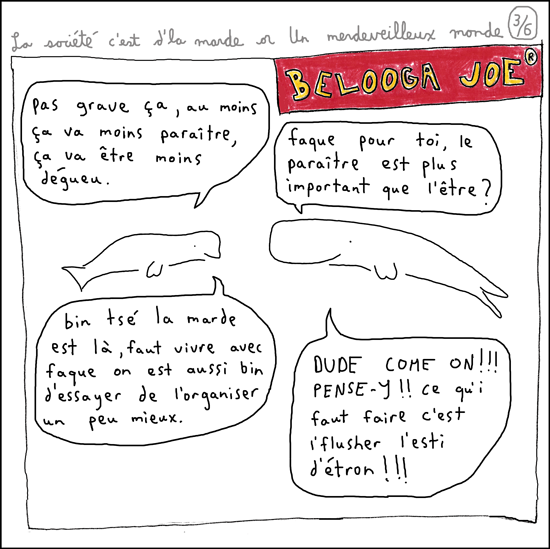 La société c'est d'la marde or Un merdeveilleux monde 3/6
BELOOGA JOE ®
pas grave ça, au moins
ça va moins paraître,
ça va être moins
dégueu.
faque pour toi, le
paraître est plus
important que l'être?
bin tsé la marde
est là, faut vivre avec
faque on est aussi bin
d'essayer de l'organiser
un peu mieux.
DUDE COME ON!!!
PENSE-Y!! ce qu'i
faut faire c'est
l'flusher l'esti
d'étron!!!